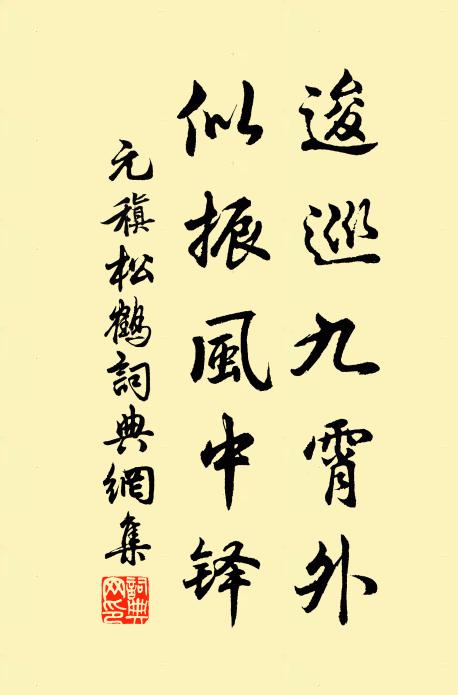 逡巡九霄外
似振風中铎
元稹松鶴詞典網集
詞典網印